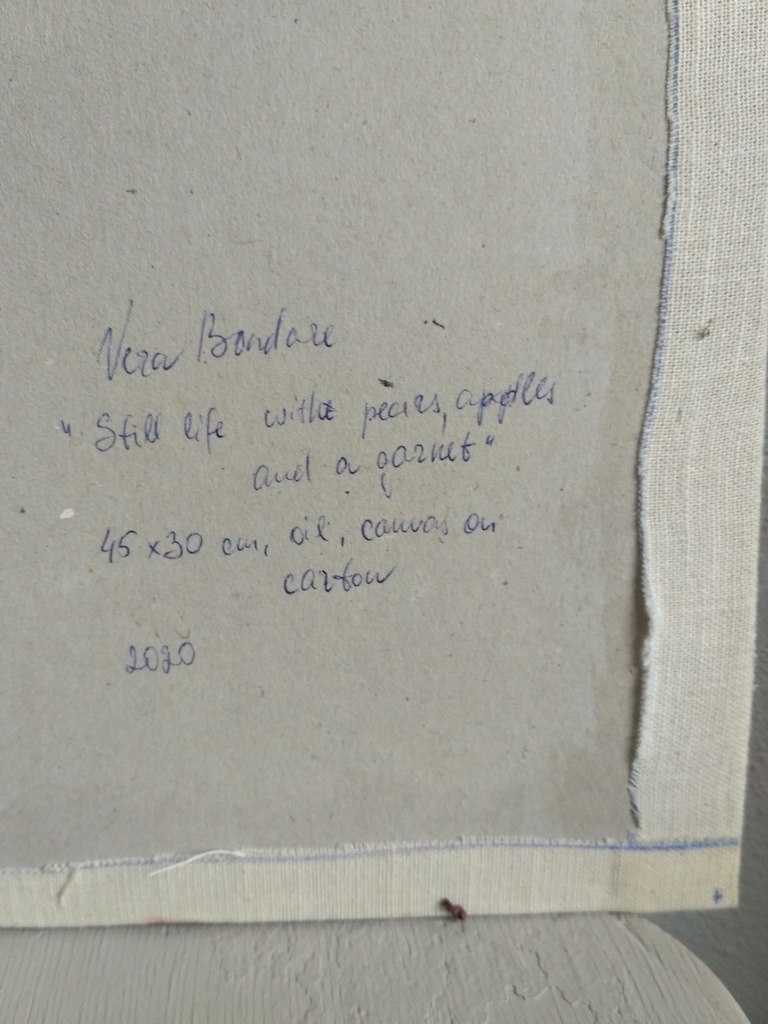 Vera Bondare
"Still life with pears, apples
and a garnet"
45 x 30 cm, oil, canvas on
carton
2020